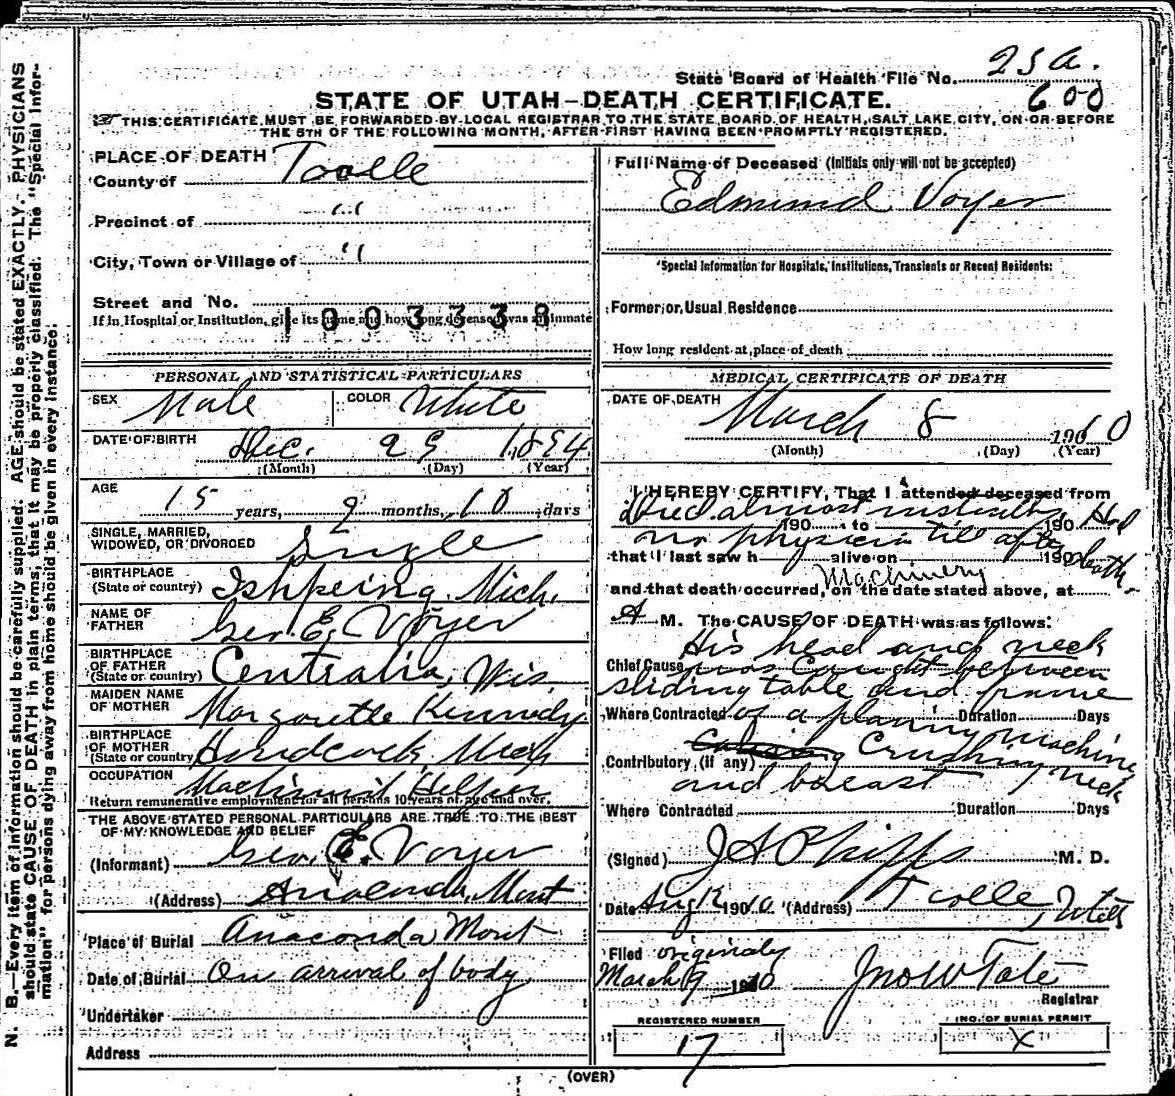 State Board of Health File No. 25a.
600
STATE OF UTAH—DEATH CERTIFICATE.
THIS CERTIFICATE MUST BE FORWARDED BY LOCAL REGISTRAR TO THE STATE BOARD OF HEALTH, SALT LAKE CITY, ON OR BEFORE
THE 5TH OF THE FOLLOWING MONTH, AFTER FIRST HAVING BEEN PROMPTLY REGISTERED.
N. B.—Every item of information should be carefully supplied. AGE should be stated EXACTLY. PHYSICIANS
should state CAUSE OF DEATH in plain terms, that it may be properly classified. The "Special Infor-
mation" for persons dying away from home should be given in every instance.
PLACE OF DEATH
County of Tooele
Precinct of "
City, Town or Village of "
Street and No.
If in Hospital or Institution, give its name and how long deceased was an inmate
1003338
PERSONAL AND STATISTICAL PARTICULARS
SEX Male COLOR White
DATE OF BIRTH Dec. 29 1894
(Month) (Day) (Year)
AGE 15 years, 2 months, 10 days
SINGLE, MARRIED,
WIDOWED, OR DIVORCED Single
BIRTHPLACE
(State or country) Ishpeing Mich.
NAME OF
FATHER Geo. E. Voyer
BIRTHPLACE
OF FATHER
(State or country) Centralia, Wis.
MAIDEN NAME
OF MOTHER Margarette Kennedy
BIRTHPLACE
OF MOTHER
(State or country) Handcock, Mich
OCCUPATION Machinist Helper
Return remunerative employment for all persons 10 years of age and over.
THE ABOVE STATED PERSONAL PARTICULARS ARE TRUE TO THE BEST
OF MY KNOWLEDGE AND BELIEF
(Informant) Geo. E. Voyer
(Address) Anaconda, Mont
Place of Burial Anaconda Mont
Date of Burial On arrival of body
Undertaker
Address
Full Name of Deceased (Initials only will not be accepted)
Edmund Voyer
Special Information for Hospitals, Institutions, Transients or Recent Residents:
Former or Usual Residence
How long resident at place of death
MEDICAL CERTIFICATE OF DEATH
DATE OF DEATH
March 8 1910
(Month) (Day) (Year)
I HEREBY CERTIFY, That I attended deceased from
died almost instantly Had
190 to 190
no physician till after death.
that I last saw h alive on 190
Machinery
and that death occurred, on the date stated above, at
A M. The CAUSE OF DEATH was as follows:
His head and neck
Chief Cause was caught between
sliding table and frame
Where Contracted of a planing machine Duration Days
Contributory (if any) Crushing neck
and breast
Where Contracted Duration Days
(Signed) J A Phipps M. D.
Date Aug 12 1910 (Address) Tooele, Utah
Filed originaly
March 9 1910 Jno W Tate
Registrar
REGISTERED NUMBER NO. OF BURIAL PERMIT
17 X
(OVER)